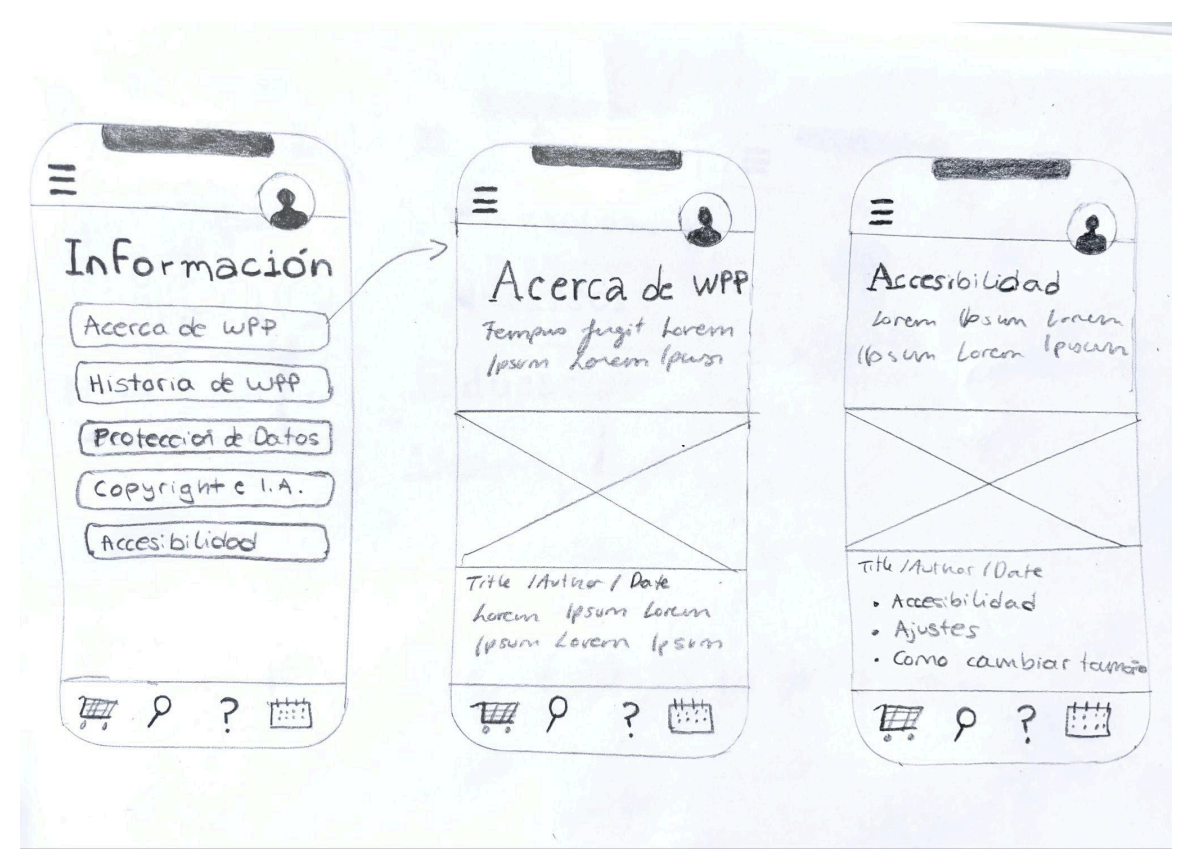 Información
Acerca de WPP
Historia de WPP
Protección de Datos
Copyright e I.A.
Accesibilidad
?
Acerca de WPP
Tempus fugit Lorem
Ipsum Lorem
Title / Author / Date
Lorem Ipsum Lorem
Ipsum Lorem Ipsum
?
Accesibilidad
Lorem Ipsum Lorem
Ipsum Lorem Ipsum
Title / Author / Date
• Accesibilidad
• Ajustes
• Como cambiar tamaño
?